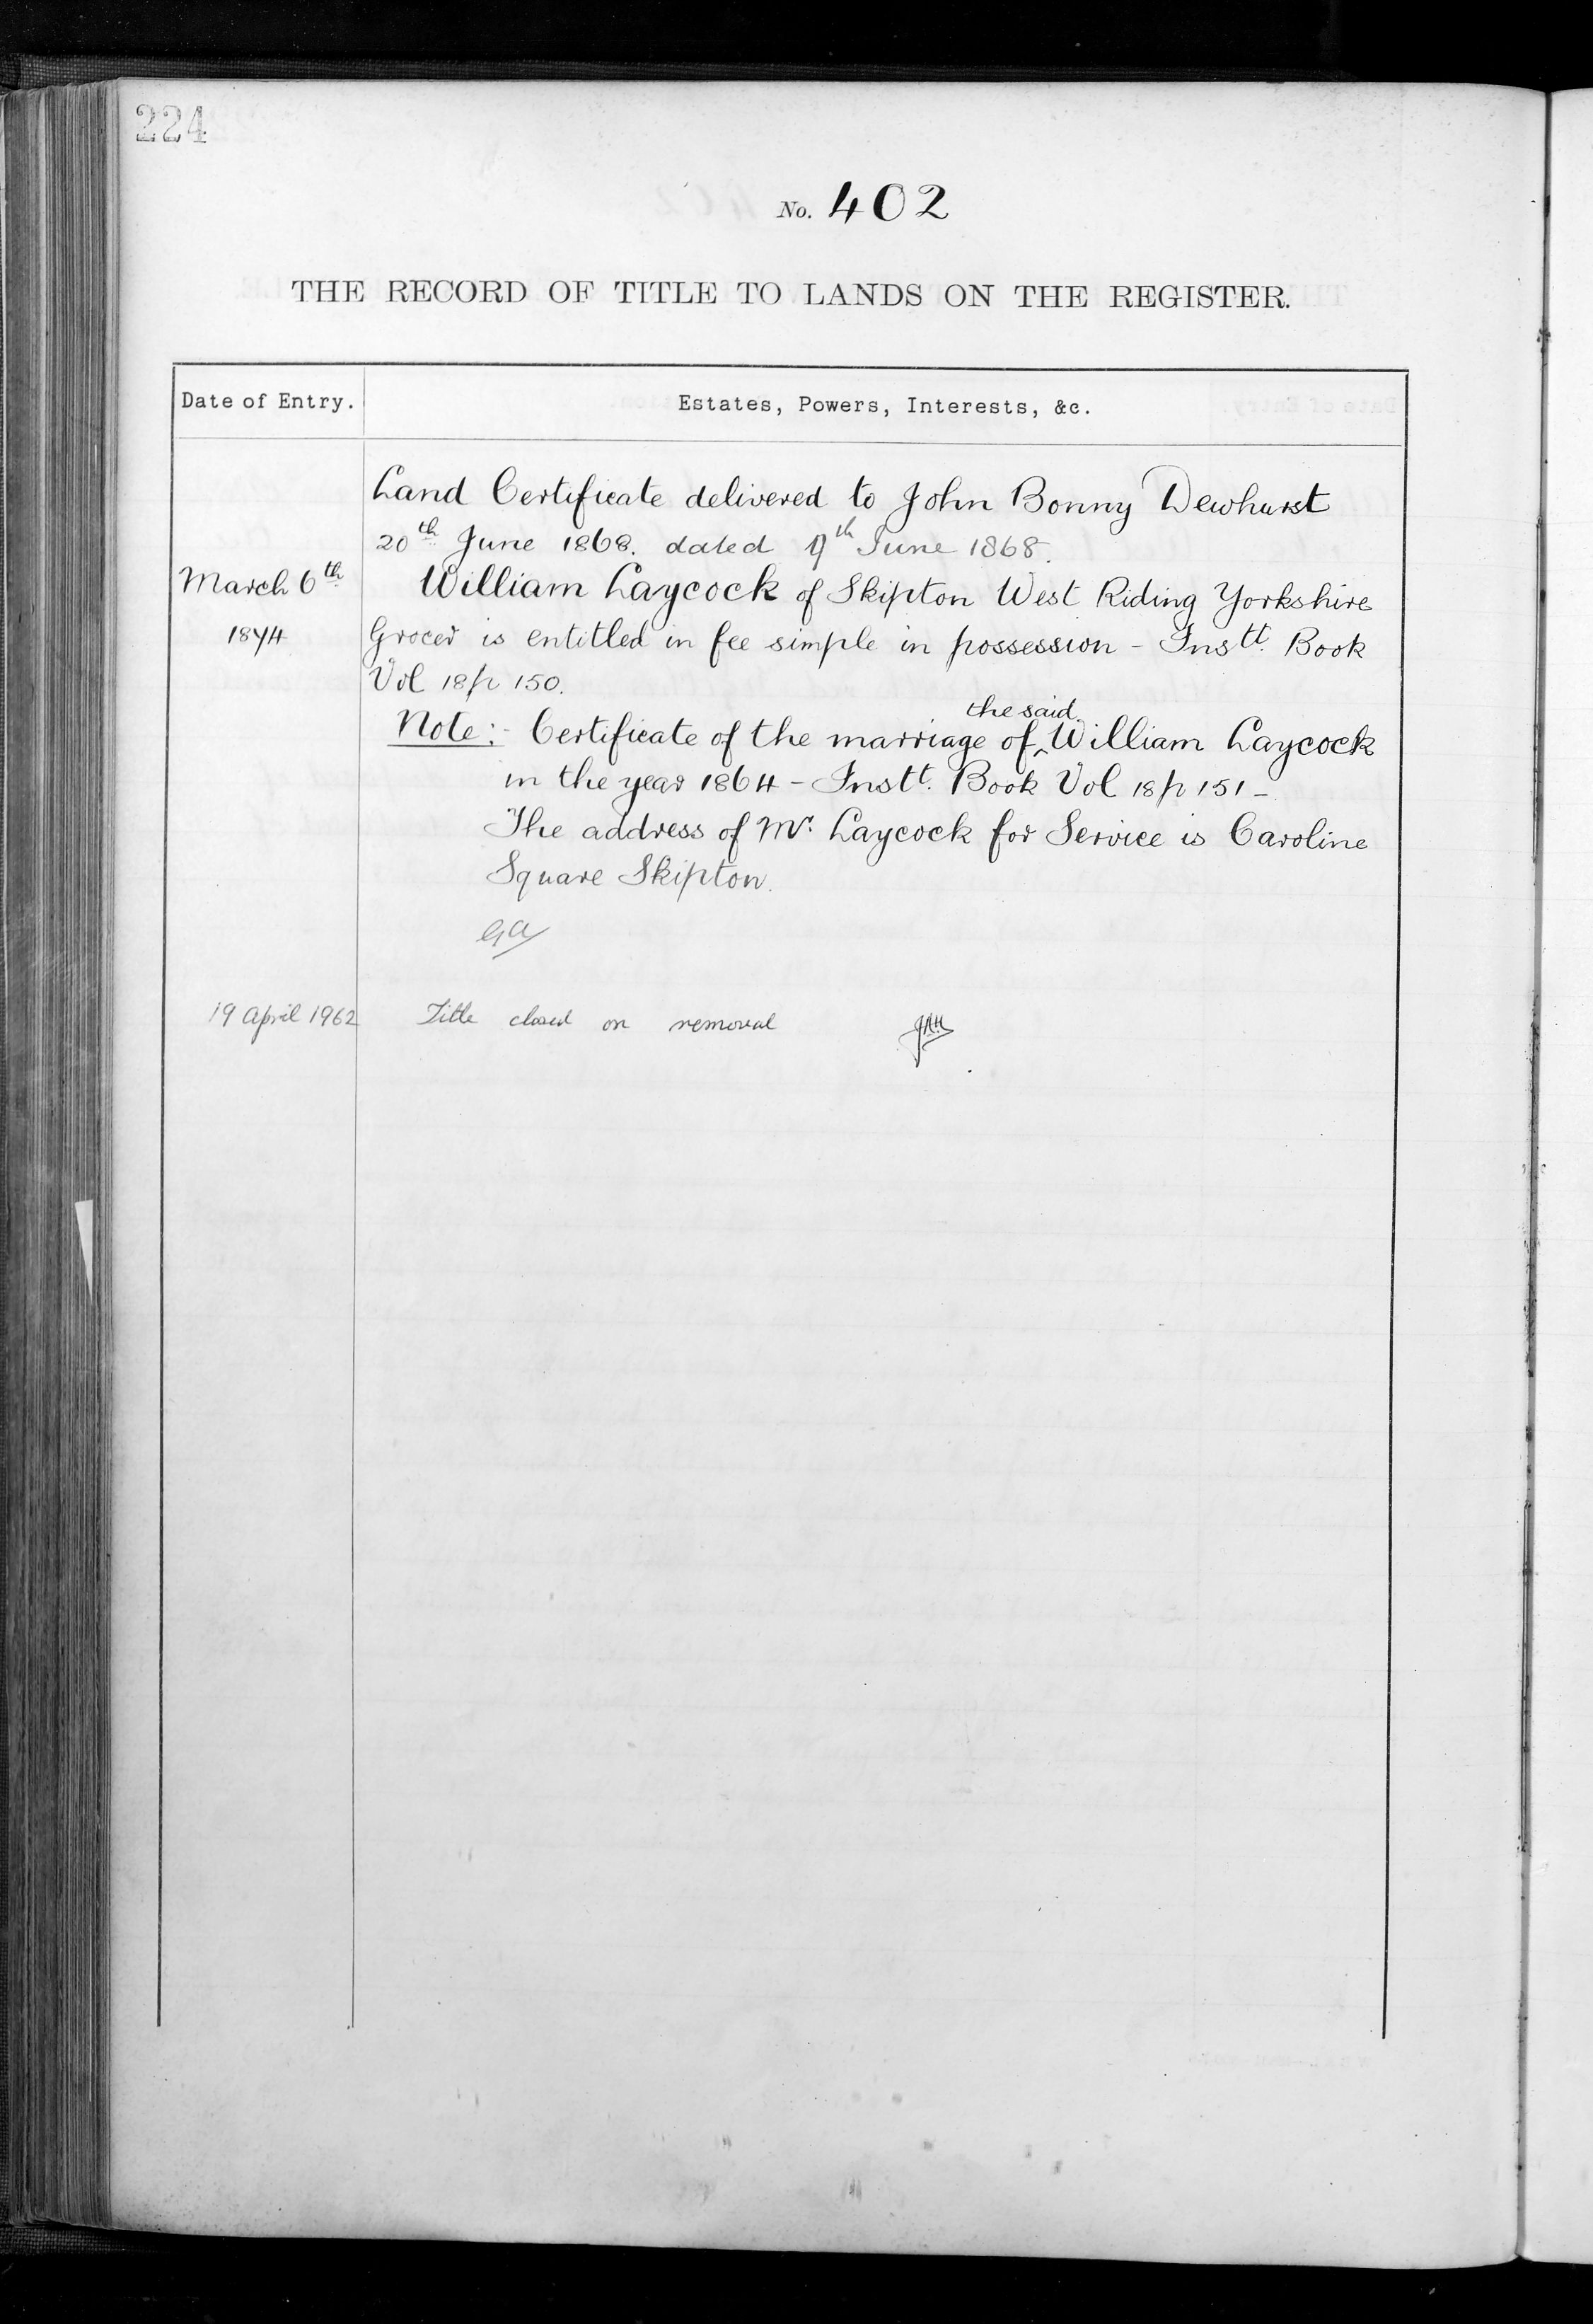 224
No. 402
THE RECORD OF TITLE TO LANDS ON THE REGISTER.
Date of Entry.
Estates, Powers, Interests, &c.
Land Certificate delivered to John Bonny Dewhurst
20th June 1868. dated June 1868.
March 6th
1874
William Laycock of Skipton West Riding Yorkshire
Grocer is entitled in fee simple in possession - Instt. Book
Vol 18 p 150.
the said
Note:- Certificate of the marriage of ^ William Laycock
in the year 1864 - Instt. Book Vol 18 p 151 -
The address of Mr. Laycock for Service is Caroline
Square Skipton.
19 April 1962
Title closed on removal